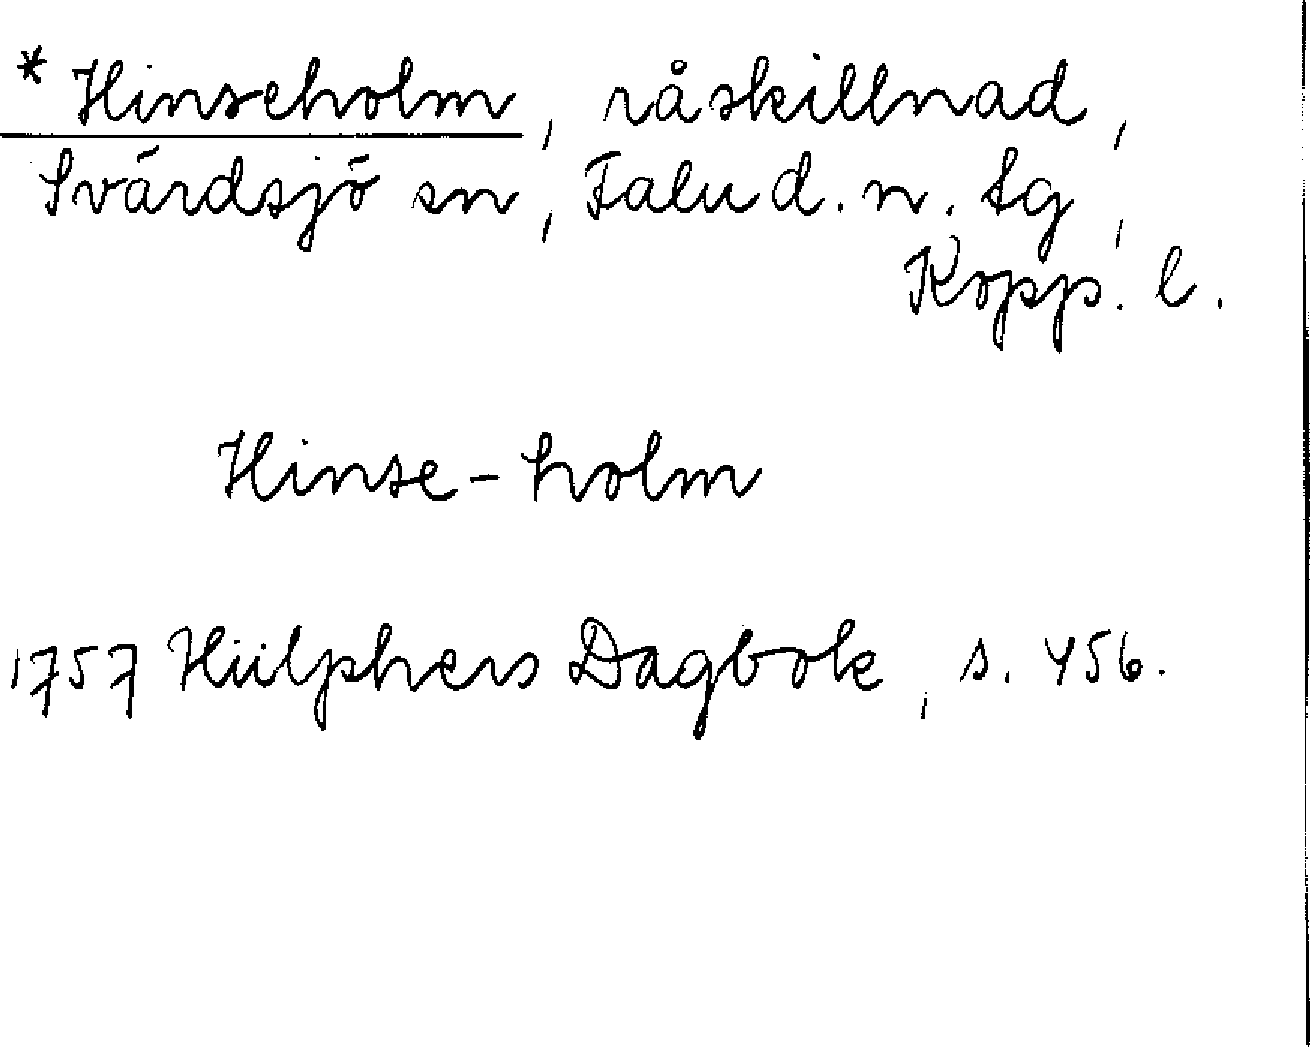 * Hinseholm, råskillnad,
Svärdsjö sn, Falu d. n. tg,
Kopp. l.
Hinse-holm
1757 Hülphers Dagbok, s. 456.